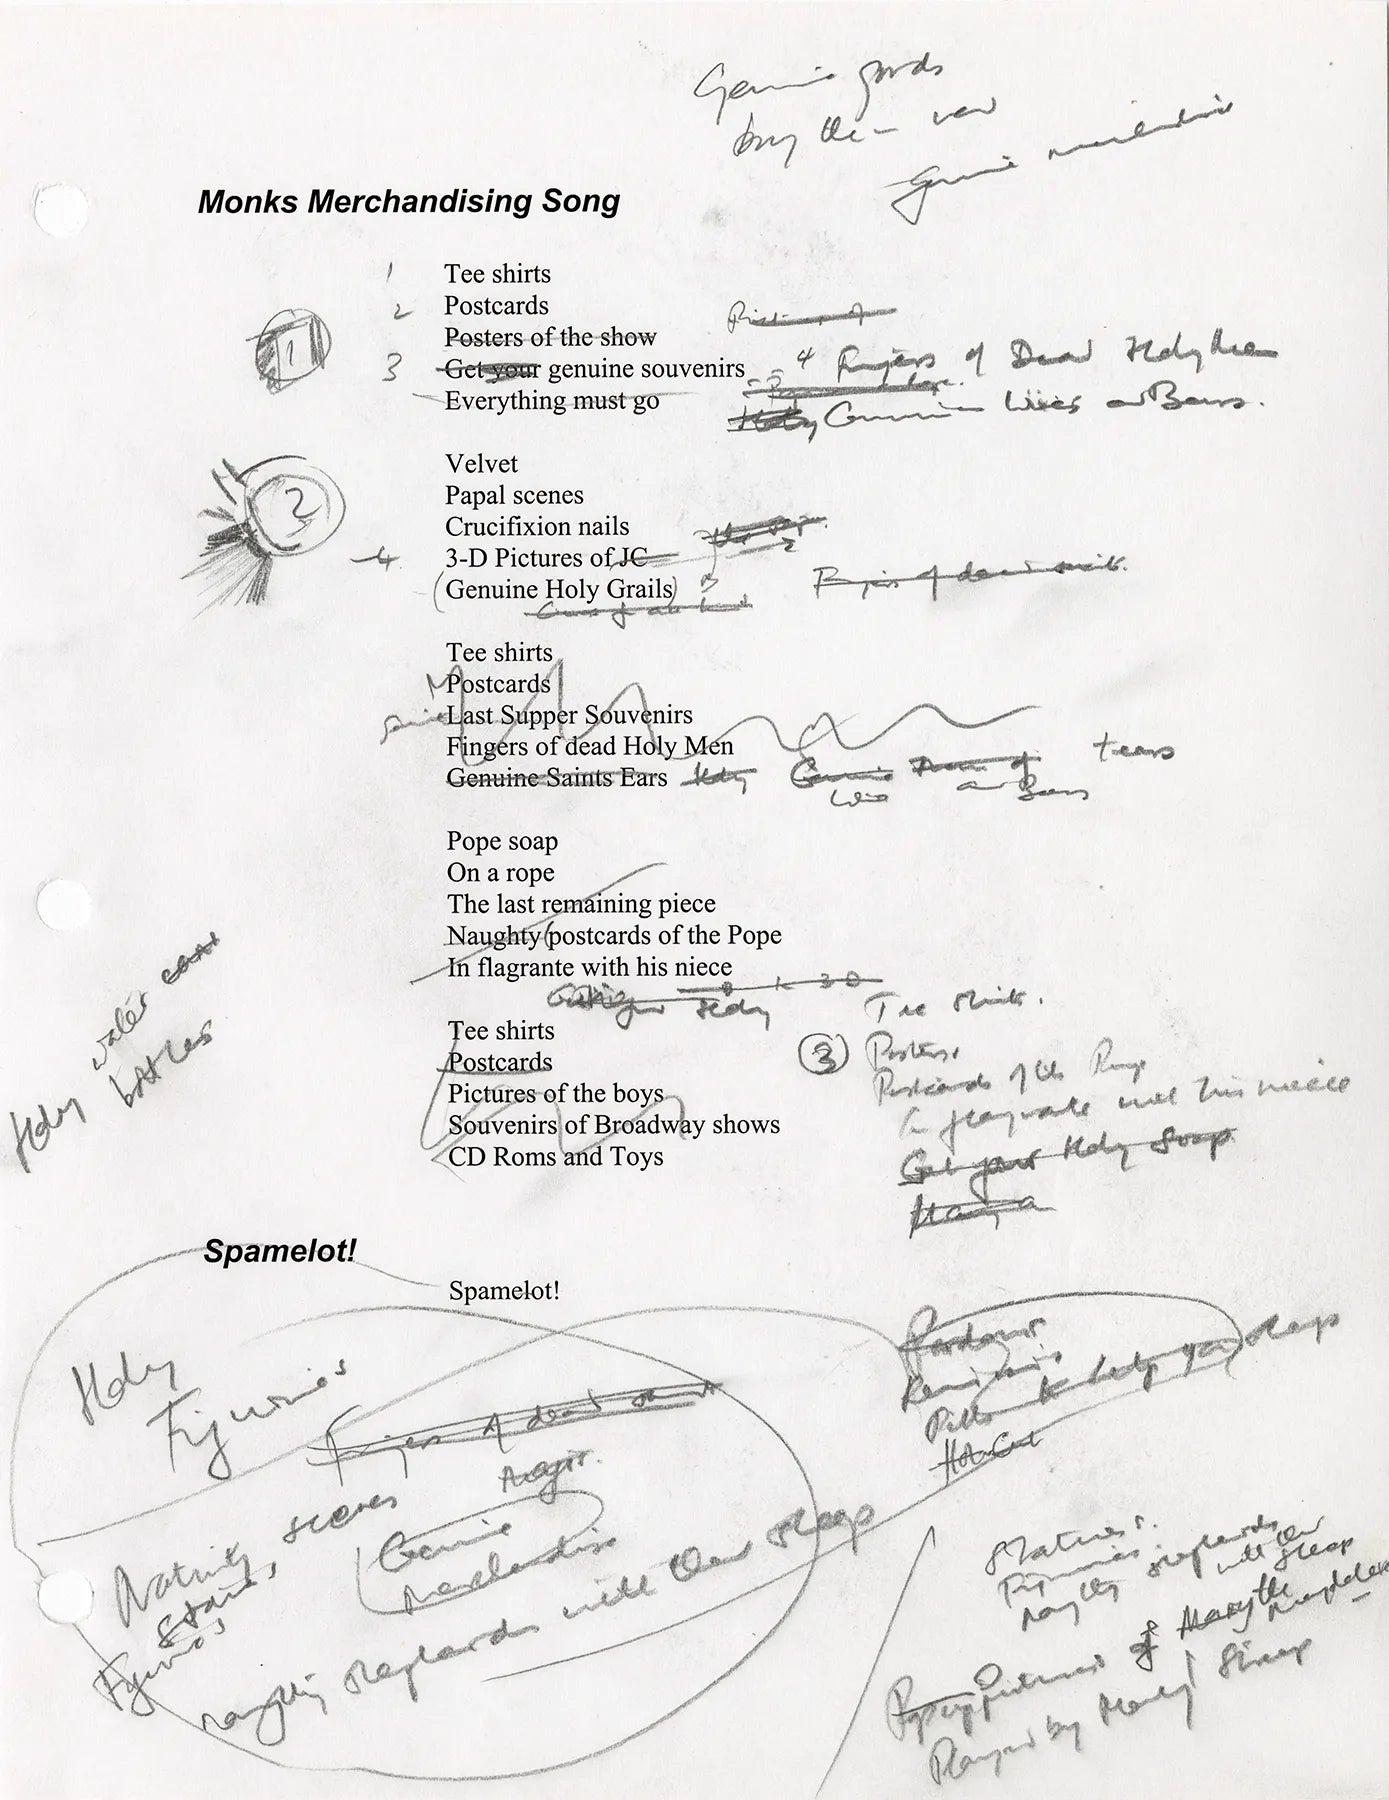 goods
buy them now
Monks Merchandising Song
1 Tee shirts
2 Postcards
Posters of the show
3 Get your genuine souvenirs
4 Fingers of Dead Holy Men
Everything must go
Holy Genuine and Bows.
1
Velvet
Papal scenes
2
Crucifixion nails
4 3-D Pictures of JC
(Genuine Holy Grails)
Fingers of dead saints.
Tee shirts
Postcards
Last Supper Souvenirs
Fingers of dead Holy Men
Genuine Saints Ears Holy Genuine tears
Pope soap
On a rope
The last remaining piece
Naughty (postcards of the Pope
In flagrante with his niece
in 3D
Holy
Tee shirts
Postcards
Pictures of the boys
Souvenirs of Broadway shows
CD Roms and Toys
Holy water
bottles
Tee shirts.
3 Posters
Postcards of the Pope
In flagrante with his niece
Get your Holy Soap
Spamelot!
Spamelot!
Holy
Figurines
Fingers of dead saints
Nativity scenes
Genuine
Merchandise
naughty shepherds with their sheep
Pardons
Pills to help you sleep
Statues.
Figurines.
naughty shepherds
with their sheep
pictures of Mary the Magdalene
Played by Meryl Streep